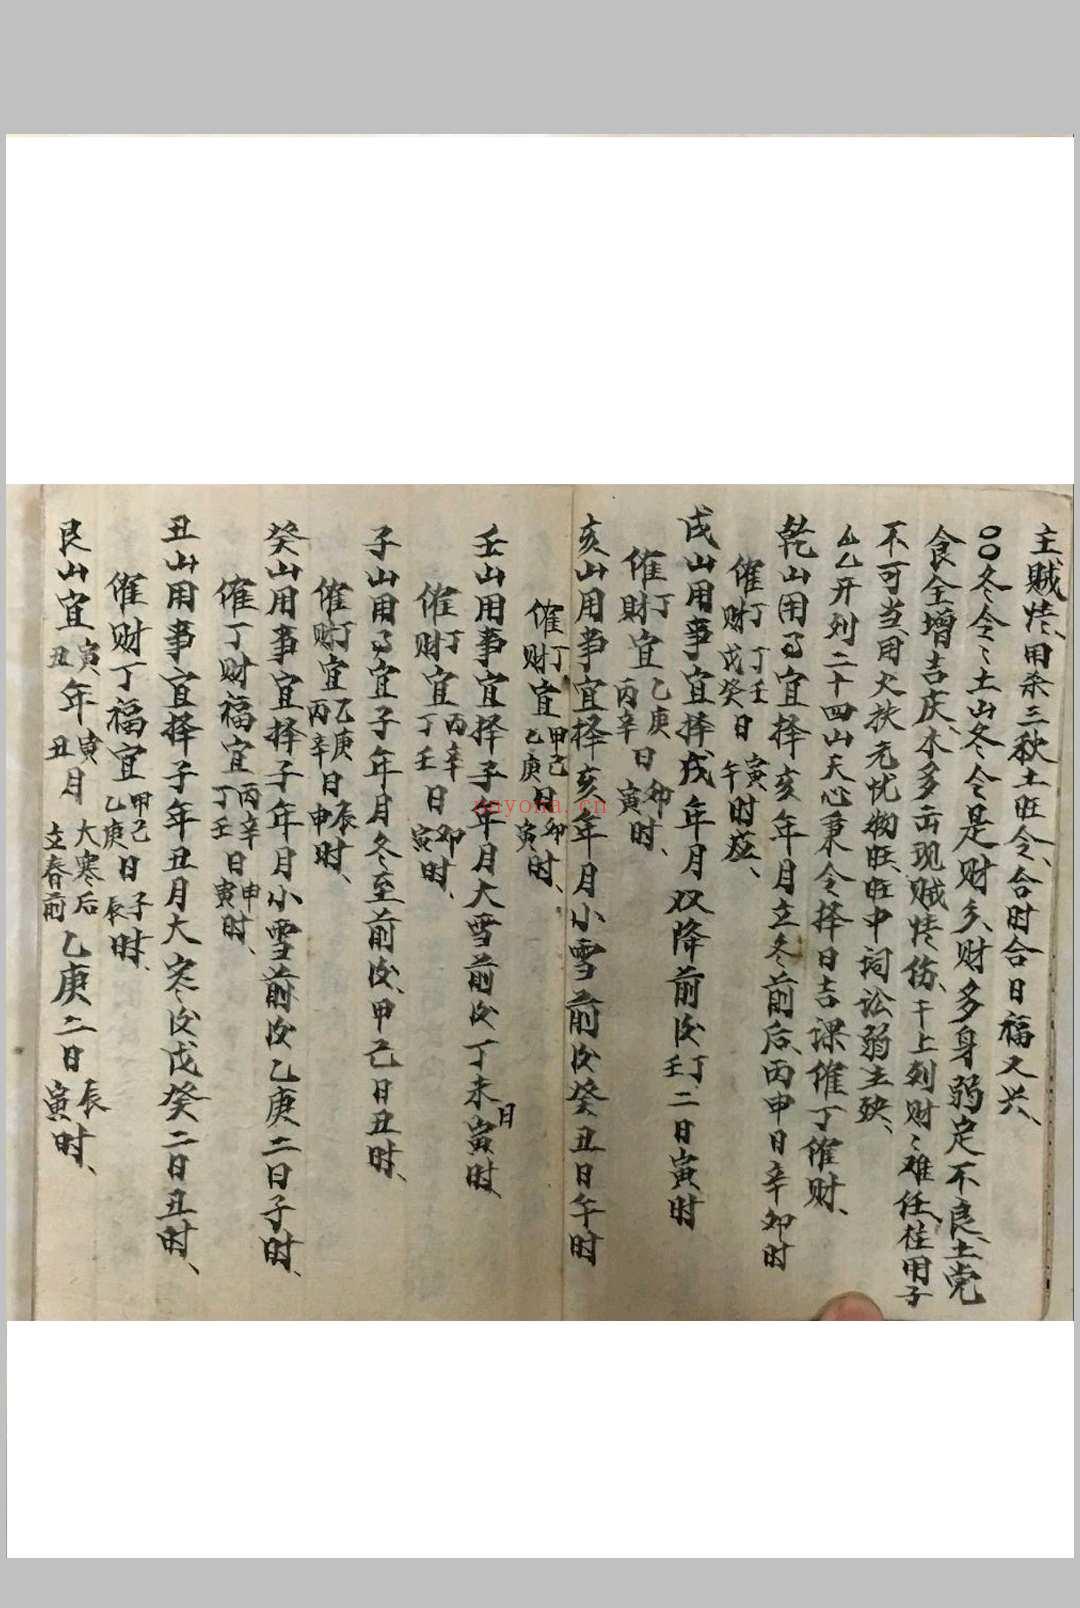 主贼怪、用杀三秋土旺令、合时合日福又兴、
〇〇冬令々土山冬令是财乡、财多身弱定不良、土党
食全增吉庆、木多击现贼怪伤、干上列财々难任、柱用子
不可当、用火扶无忧物旺、旺中词讼弱主殃、
厶乙开列二十四山天心秉令择日吉课催丁催财、
乾山用事宜择亥年月立冬前后、丙申日辛卯时
催丁财丁壬戊癸日寅午时应、
戌山用事宜择戌年月双降前后丁壬二日寅时
催丁财宜乙庚丙辛日卯寅时、
亥山用事宜择亥年月小雪前后癸丑日午时
催丁财宜甲己乙庚日卯寅时、
壬山用事宜择子年月大雪前后丁未日寅时、
催丁财宜丙辛丁壬日卯寅时、
子山用事宜子年月冬至前后、甲己日丑时、
催丁财宜乙庚丙辛日辰申时、
癸山用事宜择子年月小雪前后乙庚二日子时、
催丁财福宜丙辛丁壬日申寅时、
丑山用事宜择子年丑月大寒后戊癸二日丑时、
催财丁福宜甲己乙庚日子辰时、
艮山宜寅丑年寅丑月大寒后立春前乙庚二日辰寅时、
nayona.cn